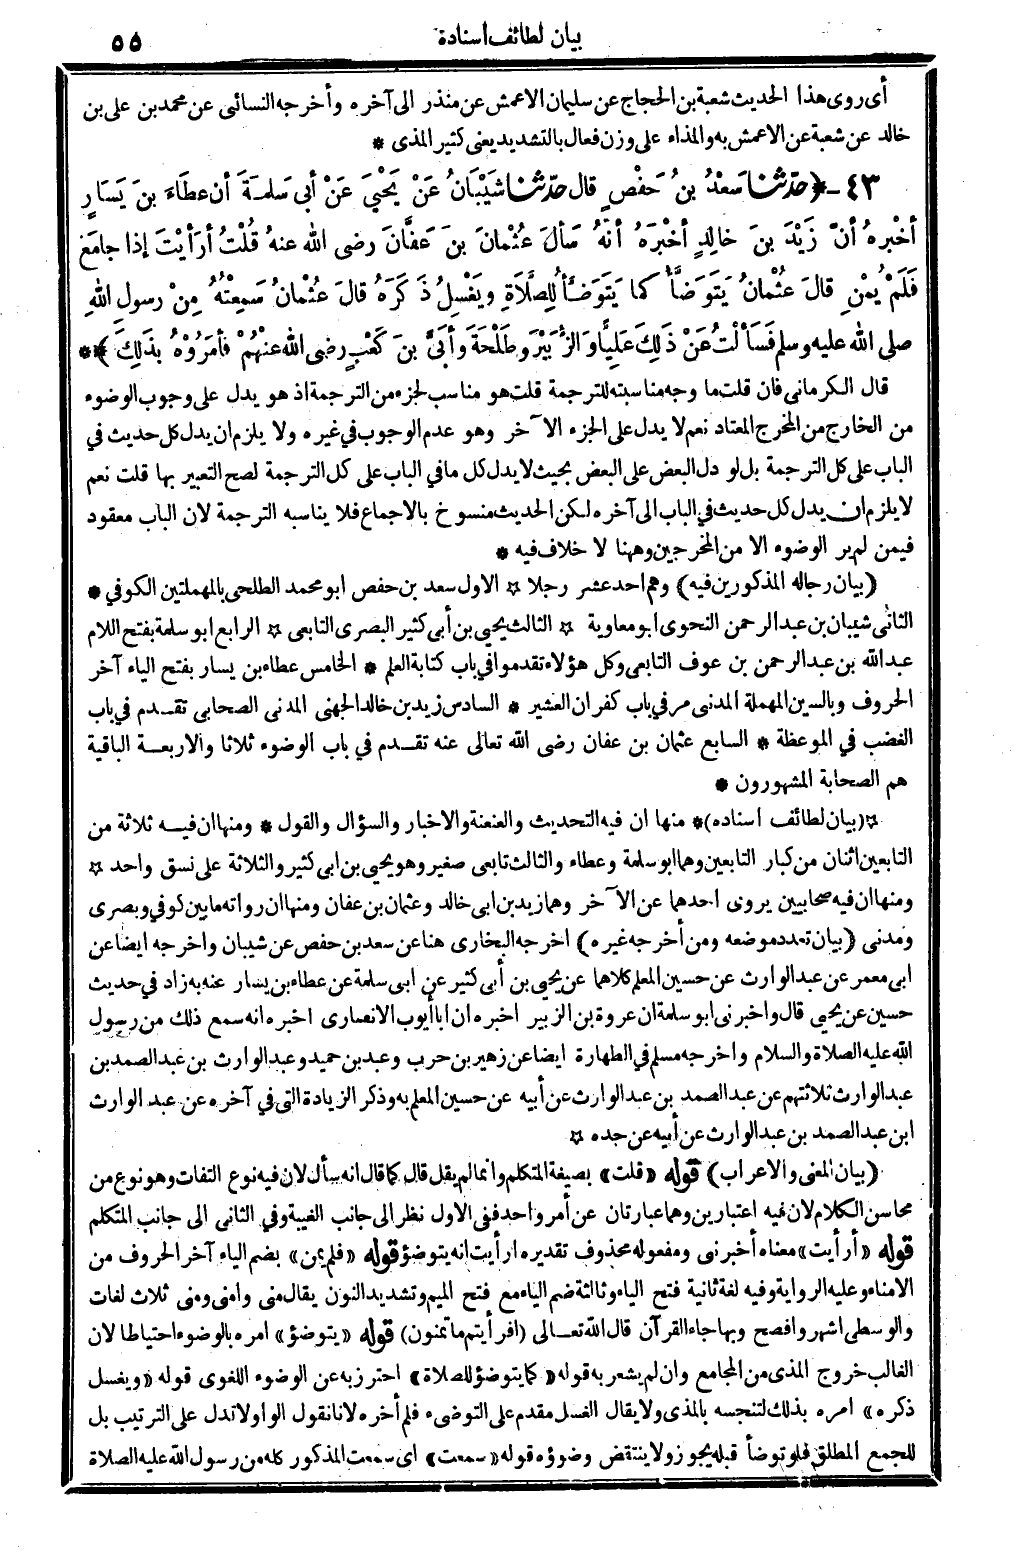 بيان لطائف اسنادة ٥٥
أى روى هذا الحديث شعبة بن الحجاج عن سليمان الاعمش عن منذر الى آخره وأخرجه النسائى عن محمد بن على بن
خالد عن شعبة عن الاعمش به والمذاء على وزن فعال بالتشديد يعنى كثير المذى *
٤٣ - ﴿حدّثنا سَعْدُ بنُ حَفْصٍ قال حدّثنا شَيْبَانُ عَنْ يَحْيَ عَنْ أبى سَلمةَ أن عطاءَ بنَ يَسَارٍ
أخْبرهُ أنَّ زَيْدَ بنَ خالِدٍ أخْبَرَهُ أنَّهُ سَألَ عُثْمانَ بنَ عَفَّانَ رضى الله عنهُ قُلْتُ أرَأيْتَ إذا جامَعَ
فَلَمْ يُمْنِ قالَ عُثْمانُ يَتَوَضَّأُ كما يَتَوَضَّأُ لِلصَّلَاةِ ويَغْسِلُ ذَكَرَهُ قالَ عُثْمانُ سَمِعْتُهُ مِنْ رسولِ اللهِ
صلى الله عليه وسلم فَسَألْتُ عَنْ ذَلِكَ عَلِيًّا وَالزُّبَيْرَ وطَلْحَةَ وأبَىَّ بنَ كَعْبٍ رضى الله عنْهُمْ فأمَرُوْهُ بذَلِكَ﴾ *
قال الكرمانى فان قلت ما وجه مناسبته للترجمة قلت هو مناسب لجزء من الترجمة اذ هو يدل على وجوب الوضوء
من الخارج من المخرج المعتاد نعم لا يدل على الجزء الآخر وهو عدم الوجوب في غيره ولا يلزم ان يدل كل حديث في
الباب على كل الترجمة بل لو دل البعض على البعض بحيث لا يدل كل ما في الباب على كل الترجمة لصح التعبير بها قلت نعم
لا يلزم ان يدل كل حديث في الباب الى آخره لكن الحديث منسوخ بالاجماع فلا يناسبه الترجمة لان الباب معقود
فيمن لم ير الوضوء الا من المخرجين وههنا لا خلاف فيه *
(بيان رجاله المذكورين فيه) وهم احد عشر رجلا ☆ الاول سعد بن حفص ابو محمد الطلحى بالمهملتين الكوفي *
الثانى شيبان بن عبد الرحمن النحوى ابو معاوية ☆ الثالث يحيى بن أبى كثير البصرى التابعى ☆ الرابع ابو سلمة بفتح اللام
عبد الله بن عبد الرحمن بن عوف التابعى وكل هؤلاء تقدموا في باب كتابة العلم * الخامس عطاء بن يسار بفتح الياء آخر
الحروف وبالسين المهملة المدنى مر في باب كفران العشير * السادس زيد بن خالد الجهنى المدنى الصحابى تقدم في باب
الغضب في الموعظة * السابع عثمان بن عفان رضى الله تعالى عنه تقدم في باب الوضوء ثلاثا والاربعة الباقية
هم الصحابة المشهورون *
☆ (بيان لطائف اسناده) * منها ان فيه التحديث والعنعنة والاخبار والسؤال والقول * ومنها ان فيه ثلاثة من
التابعين اثنان من كبار التابعين وهما ابو سلمة وعطاء والثالث تابعى صغير وهو يحيى بن ابى كثير والثلاثة على نسق واحد ☆
ومنها ان فيه صحابيين يروى احدهما عن الآخر وهما زيد بن ابى خالد وعثمان بن عفان ومنها ان رواته ما بين كوفي وبصرى
ومدنى (بيان تعدد موضعه ومن أخرجه غيره) اخرجه البخارى هنا عن سعد بن حفص عن شيبان واخرجه ايضا عن
ابى معمر عن عبد الوارث عن حسين المعلم كلاهما عن يحيى بن أبى كثير عن ابى سلمة عن عطاء بن يسار عنه به زاد في حديث
حسين عن يحيى قال واخبرنى ابو سلمة ان عروة بن الزبير اخبره ان ابا أيوب الانصارى اخبره انه سمع ذلك من رسول
الله عليه الصلاة والسلام واخرجه مسلم في الطهارة ايضا عن زهير بن حرب وعبد بن حميد وعبد الوارث بن عبد الصمد بن
عبد الوارث ثلاثتهم عن عبد الصمد بن عبد الوارث عن أبيه عن حسين المعلم به وذكر الزيادة التى في آخره عن عبد الوارث
ابن عبد الصمد بن عبد الوارث عن أبيه عن جده ☆
(بيان المعنى والاعراب) قوله «قلت» بصيغة المتكلم وانما لم يقل قال كما قال انه سأل لان فيه نوع التفات وهو نوع من
محاسن الكلام لان فيه اعتبارين وهما عبارتان عن أمر واحد ففى الاول نظر الى جانب الغيبة وفي الثانى الى جانب المتكلم
قوله «أرأيت» معناه أخبرنى ومفعوله محذوف تقديره ارأيت انه يتوضؤ قوله «فلم يمن» بضم الياء آخر الحروف من
الامناء وعليه الرواية وفيه لغة ثانية فتح الياء وثالثة ضم الياء مع فتح الميم وتشديد النون يقال منى وامنى ومنى ثلاث لغات
والوسطى اشهر وافصح وبها جاء القرآن قال الله تعالى (افرأيتم ما تمنون) قوله «يتوضؤ» امره بالوضوء احتياطا لان
الغالب خروج المذى من المجامع وان لم يشعر به قوله «كما يتوضؤ للصلاة» احترز به عن الوضوء اللغوى قوله «ويغسل
ذكره» امره بذلك لتنجسه بالمذى ولا يقال الغسل مقدم على التوضىء فلم أخره لانا نقول الواو لا تدل على الترتيب بل
للجمع المطلق فلو توضأ قبله يجوز ولا ينتقض وضوؤه قوله «سمعت» اى سمعت المذكور كله من رسول الله عليه الصلاة